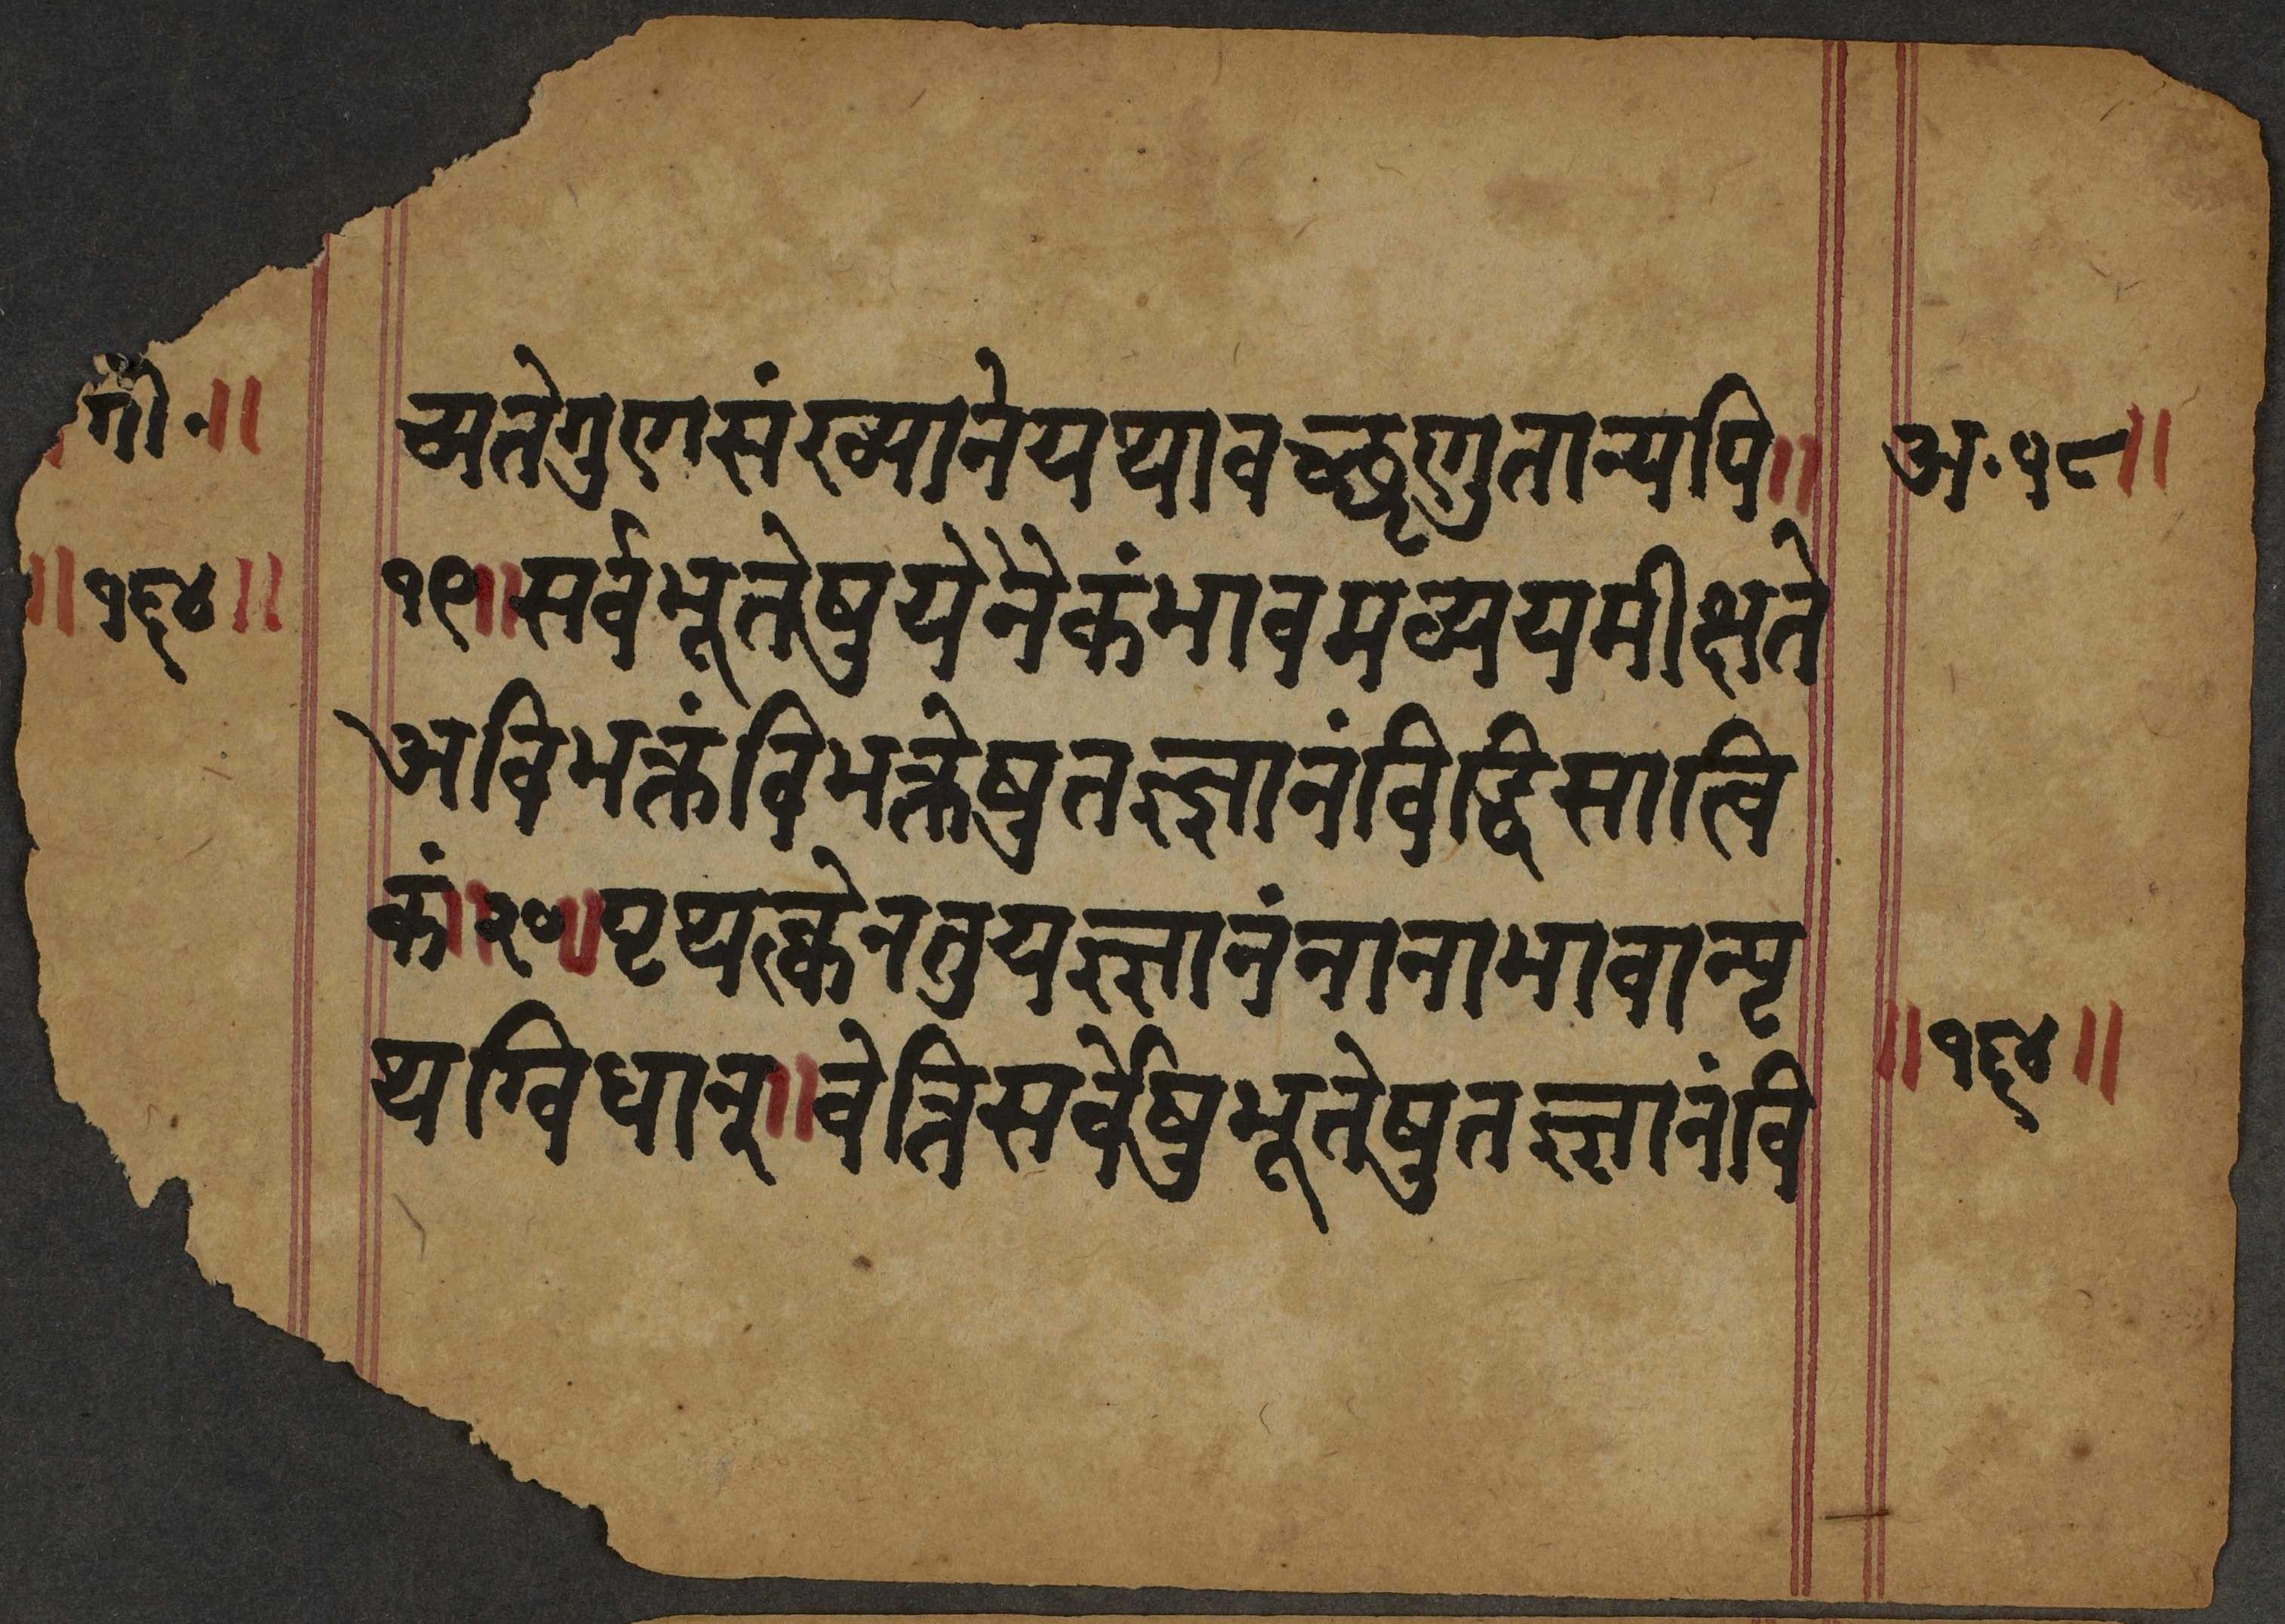 गी॰॥
॥१६४॥
च्यतेगुणसंख्यानेयथावच्छृणुतान्यपि॥
१९॥सर्वभूतेषुयेनैकंभावमव्ययमीक्षते
अविभक्तंविभक्तेषुतज्ज्ञानंविद्धिसात्वि
कं॥२०॥पृथत्क्केनतुयज्ज्ञानंनानाभावान्पृ
थग्विधान्॥वेत्तिसर्वेषुभूतेषुतज्ज्ञानंवि
अ॰१८॥
॥१६४॥